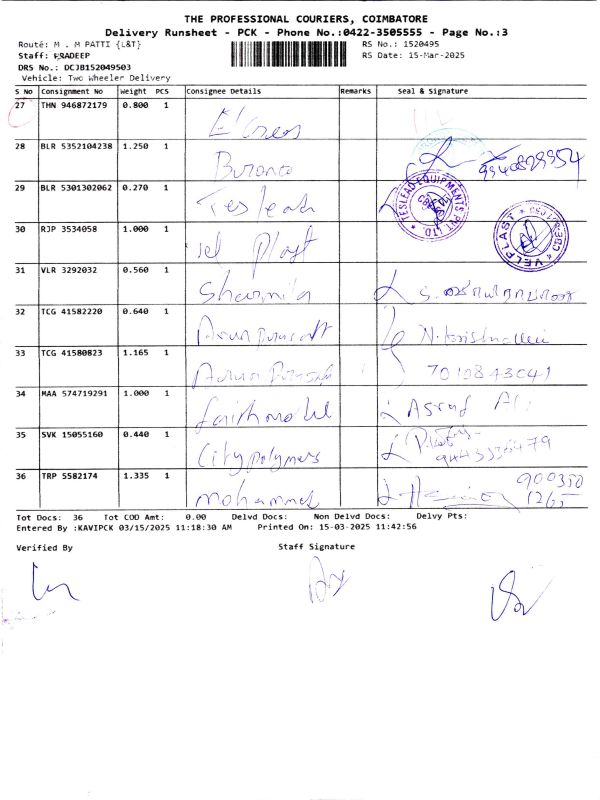 THE PROFESSIONAL COURIERS, COIMBATORE
Delivery Runsheet - PCK - Phone No.:0422-3505555 - Page No.:3
Route: M . M PATTI {L&T}
RS No.: 1520495
Staff: PRADEEP
RS Date: 15-Mar-2025
DRS No.: DCJB152049503
Vehicle: Two Wheeler Delivery
S No Consignment No Weight PCS Consignee Details Remarks Seal & Signature
27 THN 946872179 0.800 1
28 BLR 5352104238 1.250 1
29 BLR 5301302062 0.270 1 Teslead
TESLEAD EQUIPMENTS PVT LTD.
30 RJP 3534058 1.000 1 vel Plast
VELPLAST
31 VLR 3292032 0.560 1 Sharmila
32 TCG 41582220 0.640 1
33 TCG 41580823 1.165 1 7010843041
34 MAA 574719291 1.000 1 Asraf Ali
35 SVK 15055160 0.440 1 City polymers
36 TRP 5582174 1.335 1 mohammed
Tot Docs: 36 Tot COD Amt: 0.00 Delvd Docs: Non Delvd Docs: Delvy Pts:
Entered By :KAVIPCK 03/15/2025 11:18:30 AM Printed On: 15-03-2025 11:42:56
Verified By Staff Signature